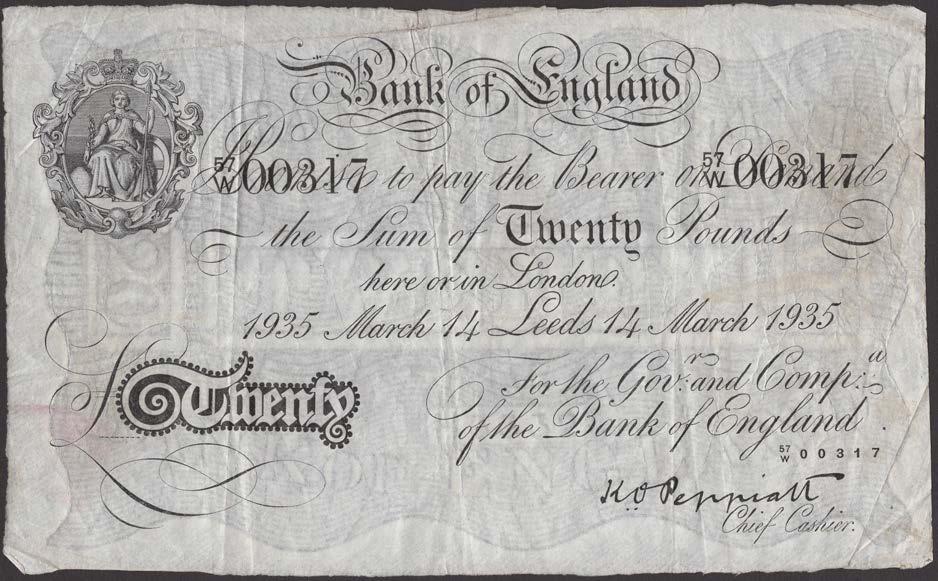 Bank of England
57/W 00317 57/W 00317
to pay the Bearer on
the Sum of Twenty Pounds
here or in London.
1935 March 14 Leeds 14 March 1935
For the Govr. and Compa.
of the Bank of England.
£ Twenty
57/W 00317
K.O. Peppiatt
Chief Cashier.